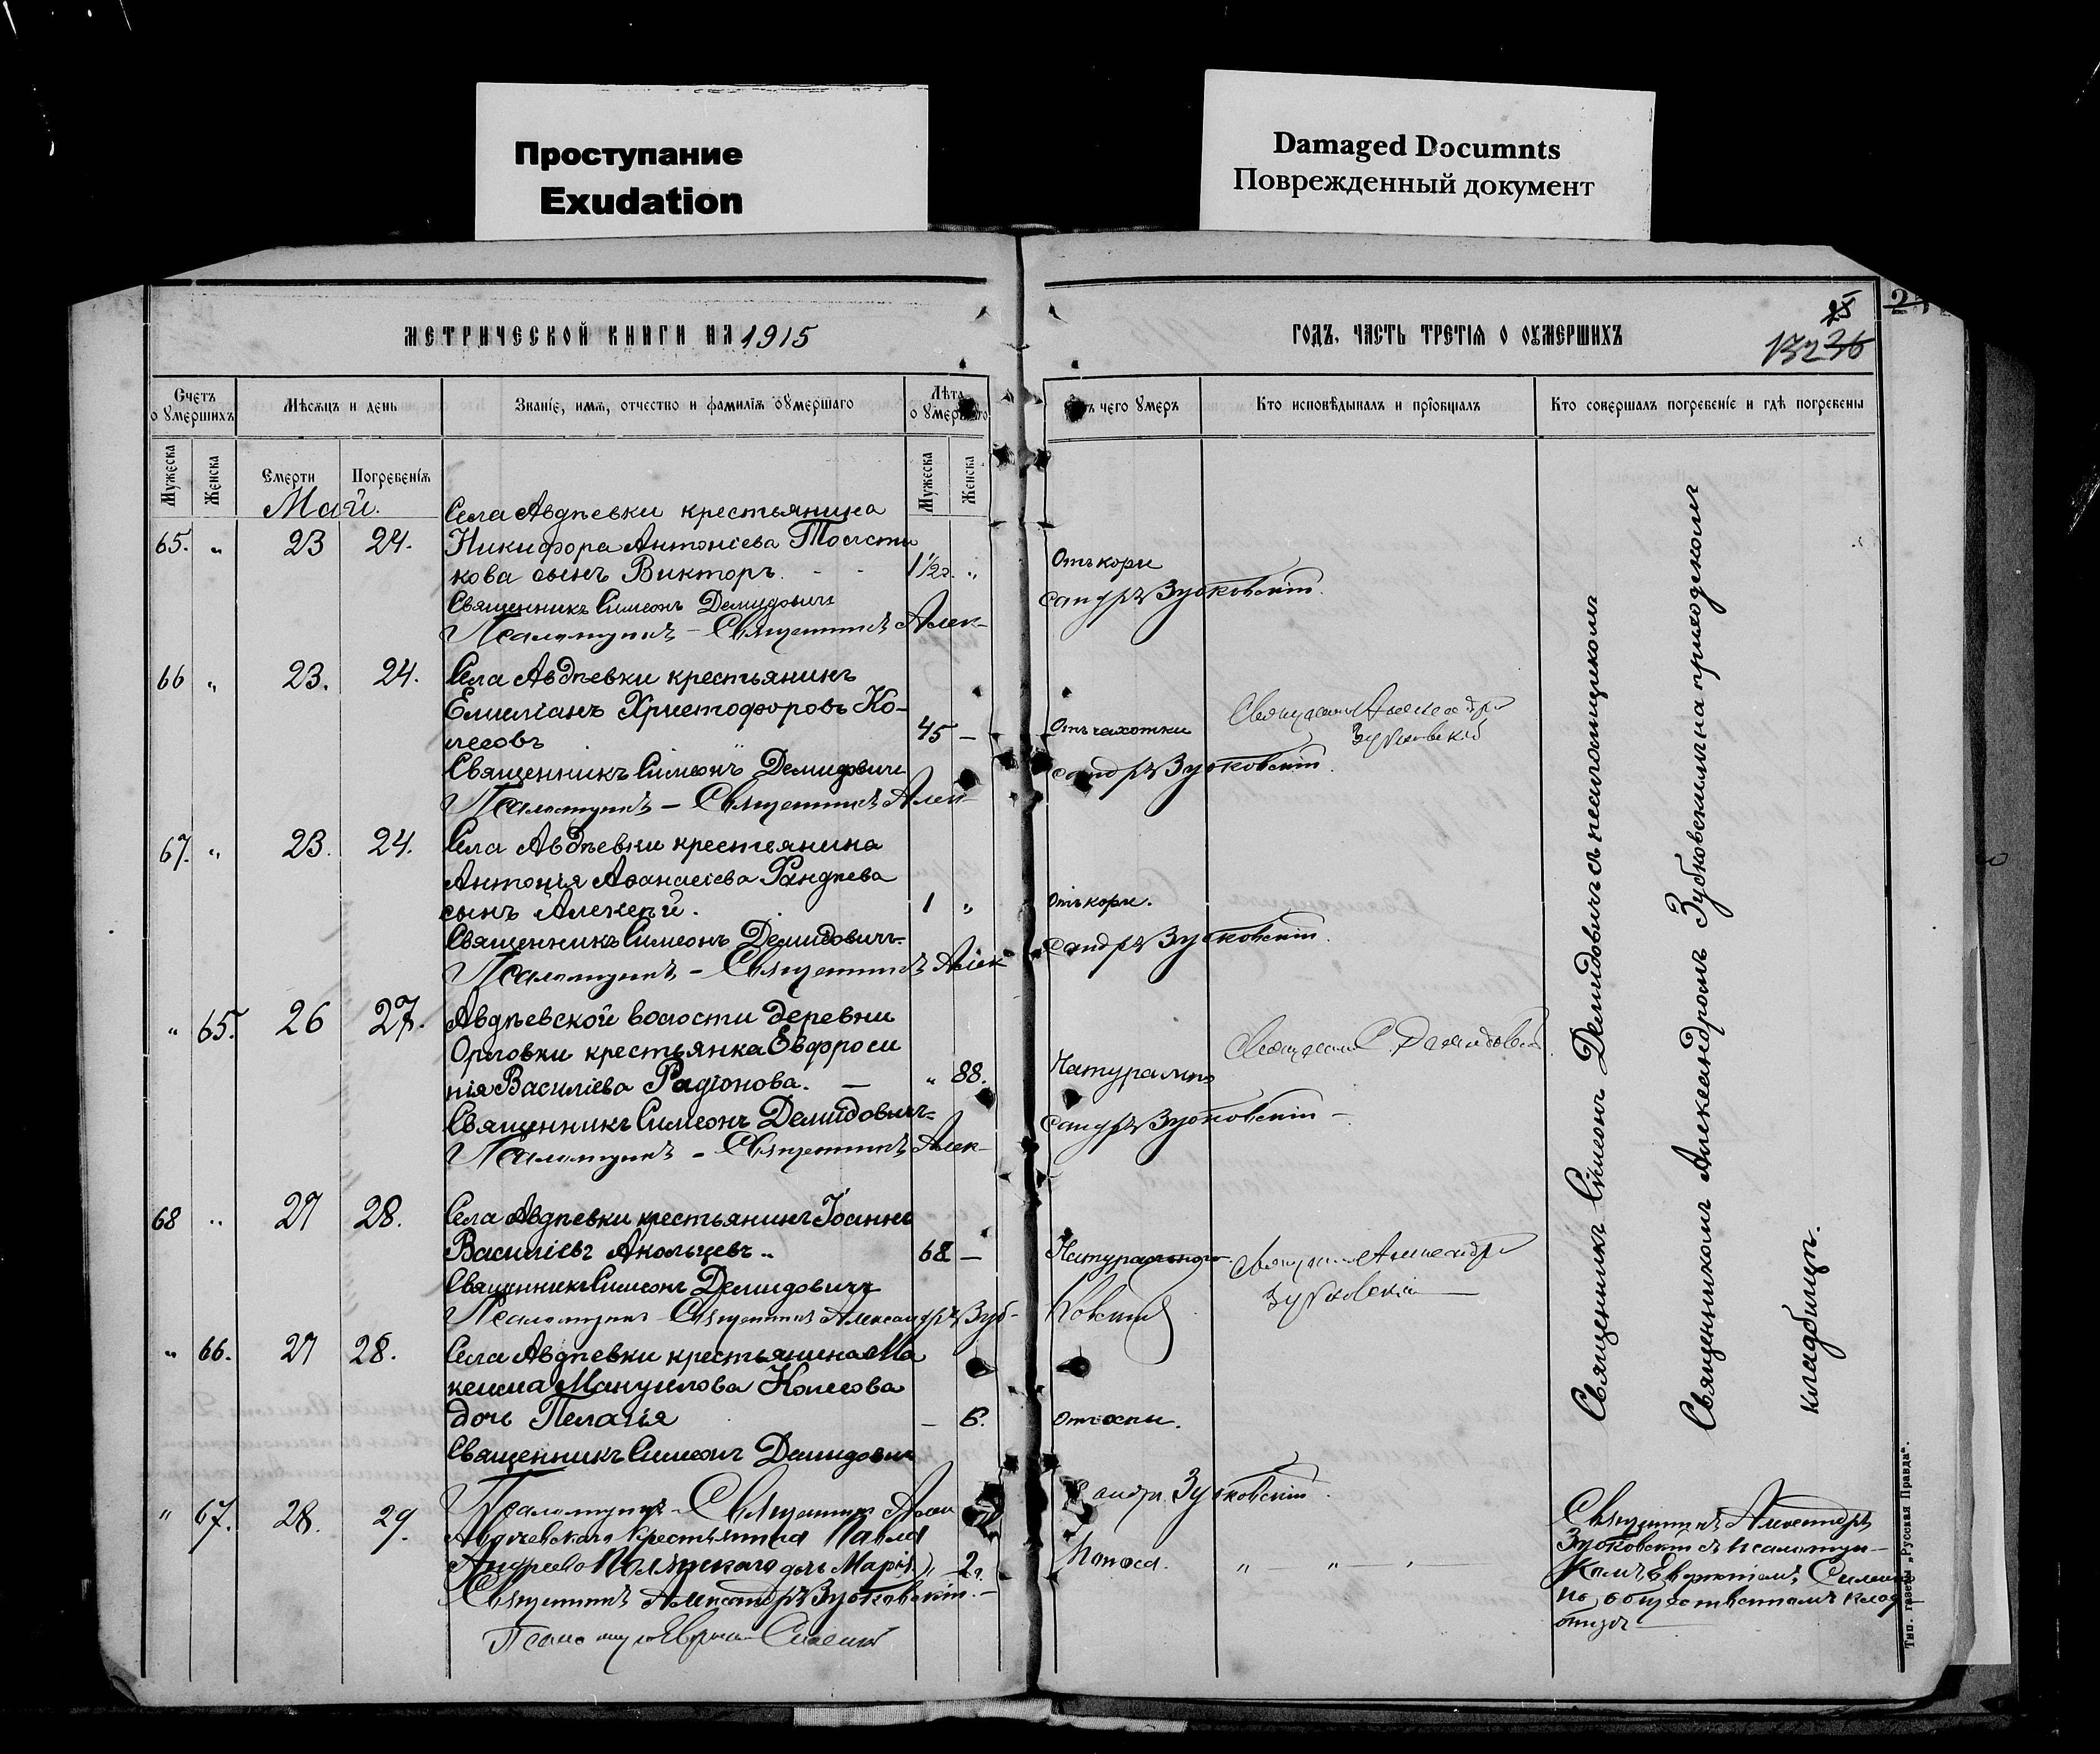 Проступание
Exudation
Damaged Documnts
Поврежденный документ
МЕТРИЧЕСКОЙ КНИГИ НА 1915
ГОДЪ, ЧАСТЬ ТРЕТІЯ О ОУМЕРШИХЪ
132 36
Счетъ о умершихъ
Мѣсяцъ и день
Званіе, имя, отчество и фамилія оумершаго
Лѣта о умершаго
чего умеръ
Кто исповѣдывалъ и пріобщалъ
Кто совершалъ погребеніе и гдѣ погребены
Мужеска
Женска
Смерти
Погребенія
Мужеска
Женска
Май.
Села Авдѣевки крестьянина
65. „ 23 24. Никифора Антоніева Толсти
кова сынъ Викторъ. - - 1½г. „ Отъ кори
Священникъ Симеонъ Демидовичъ
Псаломщикъ – Священникъ Алек-
сандръ Зубковскій.
66 „ 23. 24. Села Авдѣевки крестьянинъ
Емиліанъ Христофоровъ Ко-
лесовъ 45 – Отъ чахотки
Священникъ Александръ
Зубковскій
Священникъ Симеонъ Демидовичъ
Псаломщикъ – Священникъ Алек-
сандръ Зубковскій.
67. „ 23. 24. Села Авдѣевки крестьянина
Антонія Аѳанасіева
сынъ Алексѣй. 1 „ Отъ кори.
Священникъ Симеонъ Демидовичъ.
Псаломщикъ – Священникъ Алек
сандръ Зубковскій.
„ 65. 26 27. Авдѣевской волости деревни
Орловки крестьянка Евфроси
нія Василіева Радіонова. — „ 88. Натурально
Священникъ С. Демидович
Священникъ Симеонъ Демидовичъ-
Псаломщикъ – Священникъ Алек-
сандръ Зубковскій –
68 „ 27 28. Села Авдѣевки крестьянинъ Іоаннъ
Василіевъ Акольцевъ „ 68 – Натурально
Священникъ Александръ
Зубковскій
Священникъ Симеонъ Демидовичъ
Псаломщикъ – Священникъ Александръ Зуб-
ковскій
„ 66. 27 28. Села Авдѣевки крестьянина Ма
ксима Мануилова Колесова
дочь Пелагія – 6. Отъ оспы.
Священникъ Симеонъ Демидович
Псаломщикъ – Священникъ Алек
сандръ Зубковскій.
„ 67. 28. 29. Авдѣевскаго крестьянина Павла
Андреева Полянскаго дочь Марія „ 2г. Поноса. „ — „ — „
Священникъ Александръ Зубковскій. –
Священникъ Симеонъ Демидовичъ съ псаломщикомъ
Священникомъ Александромъ Зубковскимъ на приходскомъ
кладбищѣ.
Священникъ Александръ
Зубковскій съ псаломщи-
комъ
по общественномъ клад-
бищѣ
Тип. газеты „Русская Правда“.